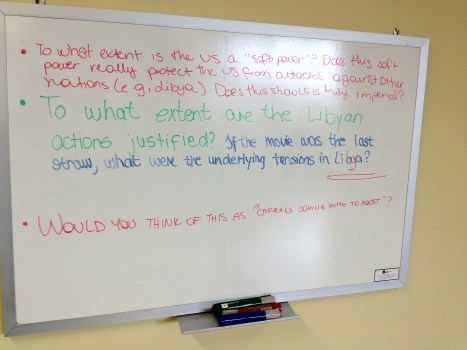 • To what extent is the US a "soft power"? Does this soft
power really protect the US from attacks against other
nations (e.g, Libya) Does this show US is truly imperial?
• To what extent are the Libyan
actions justified? If the movie was the last
straw, what were the underlying tensions in Libya?
• WOULD YOU THINK OF THIS AS "CHICKENS COMING HOME TO ROOST"?